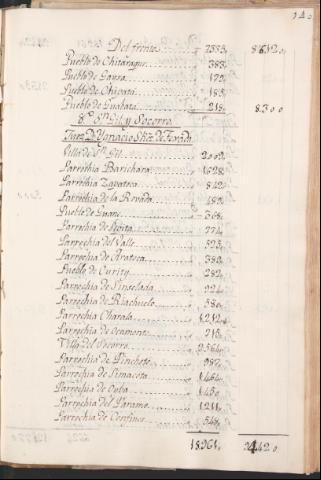 140
Del frente 7333, 8642 0,
Pueblo de Chitaraque 383,
Pueblo de
Pueblo de 183,
Pueblo de Guahata 218, 8300
8.º Sn. Gil, y Socorro
Juez Dn. Ygnacio
Villa de Sn. Gil 2000,
Parrochia Barichara 1628,
Parrochia Zapatoca 842,
Parrochia de la Rovada
Pueblo de Guane 368,
Parrochia de Oyita 774,
Parrochia del Valle 523,
Parrochia de Aratoca 380,
Pueblo de Curity 282,
Parrochia de Sinselada
Parrochia de Riachuelo 580,
Parrochia Charala 1212,
Parrochia de Ocamonte
Villa del Socorro 2564,
Parrochia de Pinchote 987,
Parrochia de Simacota 1464,
Parrochia de Oyba
Parrochia del Paramo 1211,
Parrochia de Confines
18961,